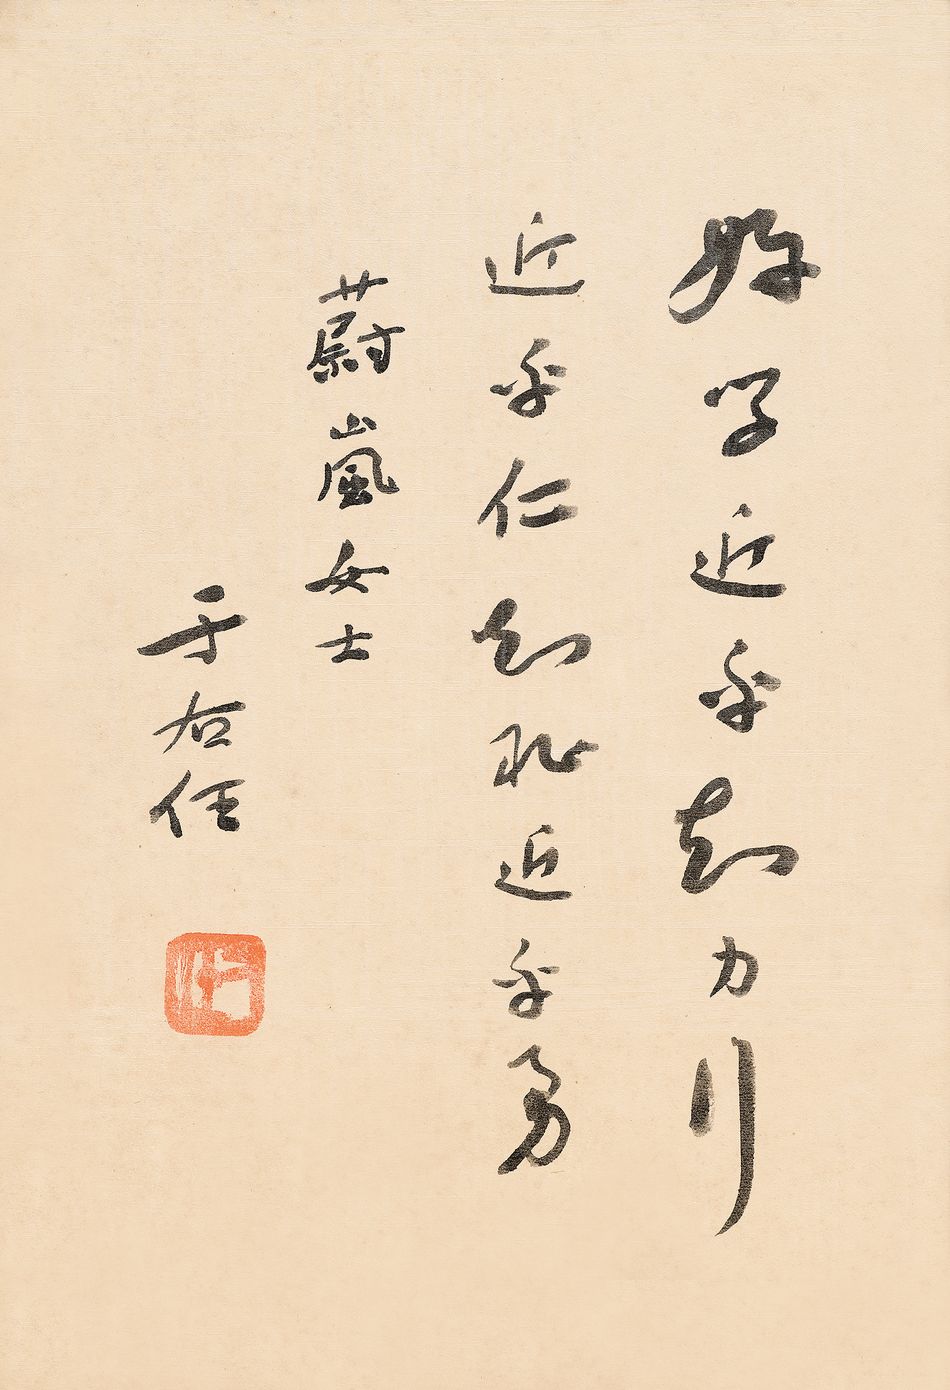 好学近乎知力行
近乎仁知恥近乎勇
蔚嵐女士
于右任